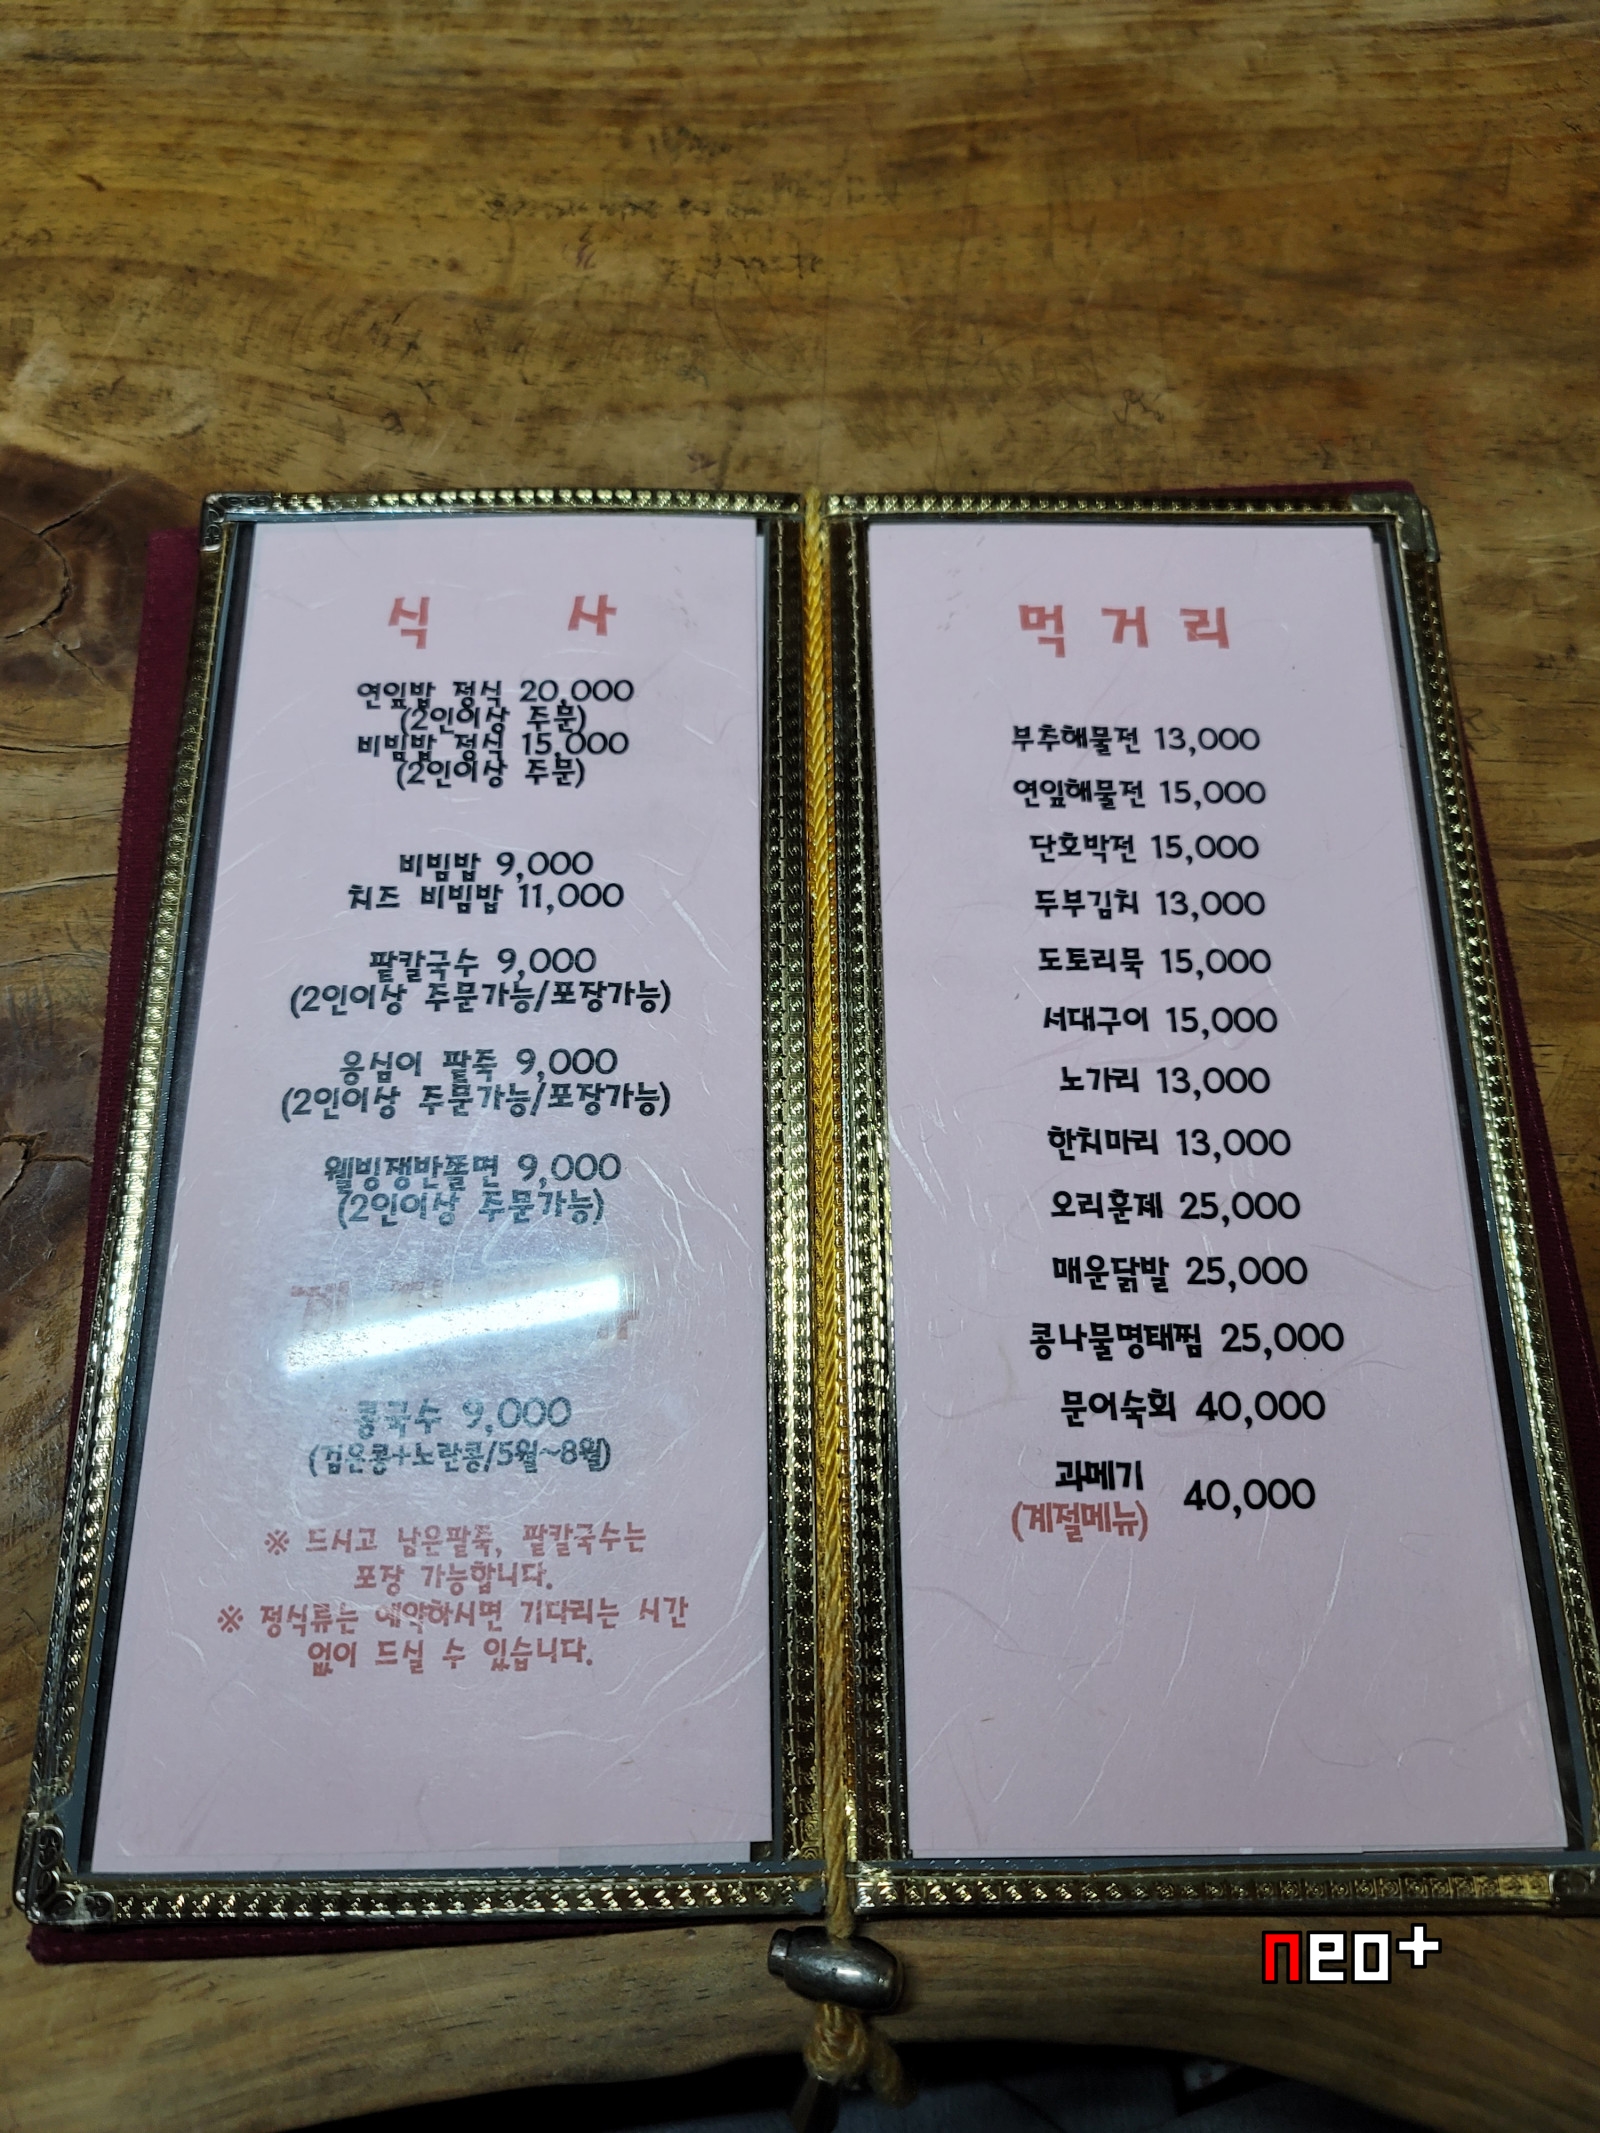 식 사
연잎밥 정식 20,000
(2인이상 주문)
비빔밥 정식 15,000
(2인이상 주문)
비빔밥 9,000
치즈 비빔밥 11,000
팥칼국수 9,000
(2인이상 주문가능/포장가능)
옹심이 팥죽 9,000
(2인이상 주문가능/포장가능)
웰빙쟁반쫄면 9,000
(2인이상 주문가능)
콩국수 9,000
(검은콩+노란콩/5월~8월)
※ 드시고 남은팥죽, 팥칼국수는
포장 가능합니다.
※ 정식류는 예약하시면 기다리는 시간
없이 드실 수 있습니다.
먹거리
부추해물전 13,000
연잎해물전 15,000
단호박전 15,000
두부김치 13,000
도토리묵 15,000
서대구이 15,000
노가리 13,000
한치마리 13,000
오리훈제 25,000
매운닭발 25,000
콩나물명태찜 25,000
문어숙회 40,000
과메기 40,000
(계절메뉴)
neo+